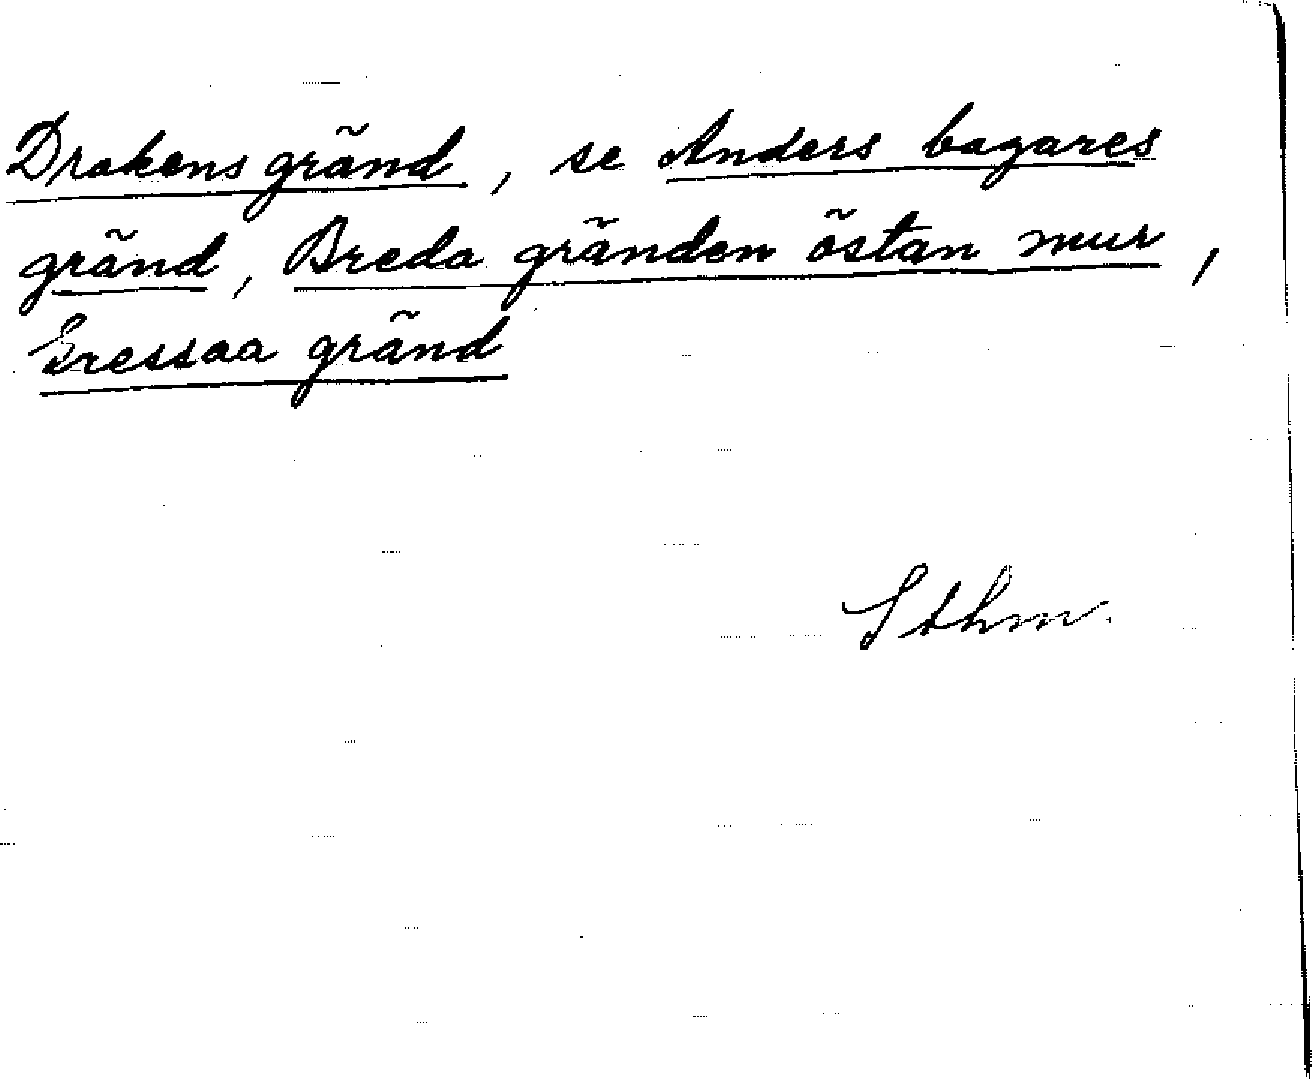 Drakens gränd, se Anders bagares
gränd, Breda gränden östan mur,
Gressaa gränd
Sthm.